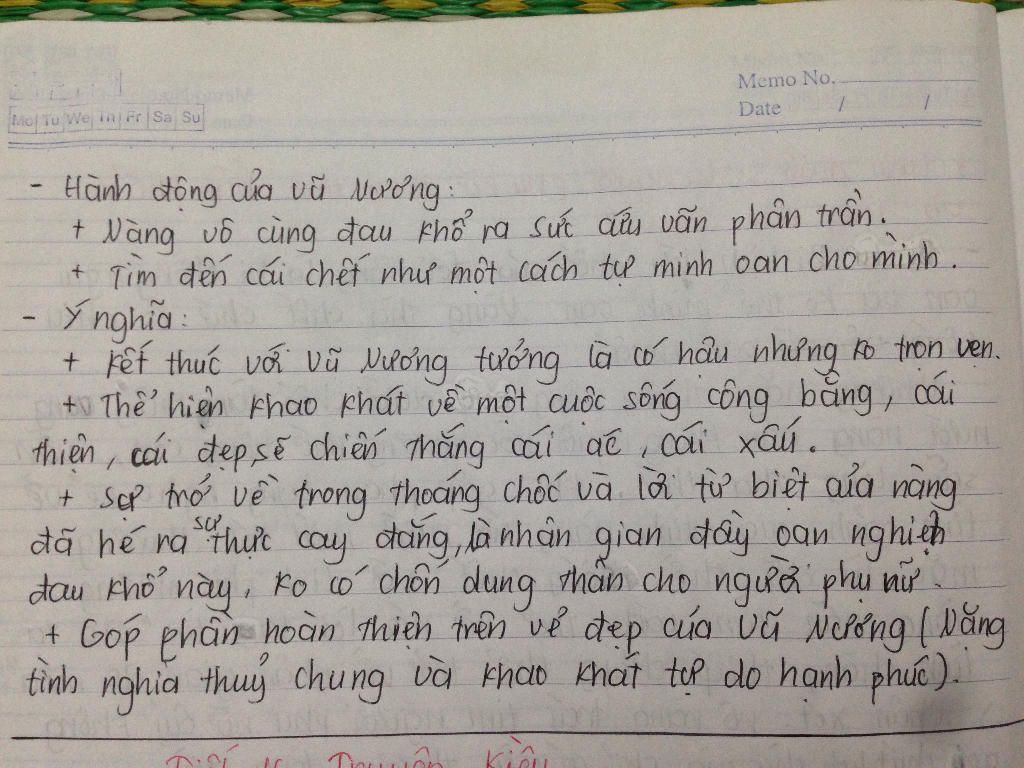 Memo No.
Date / /
Mo Tu We Th Fr Sa Su
- Hành động của Vũ Nương:
+ Nàng vô cùng đau khổ ra sức cứu vãn phân trần.
+ Tìm đến cái chết như một cách tự minh oan cho mình.
- Ý nghĩa:
+ Kết thúc với Vũ Nương tưởng là có hậu nhưng ko trọn vẹn.
+ Thể hiện khao khát về một cuộc sống công bằng, cái
thiện, cái đẹp, sẽ chiến thắng cái ác, cái xấu.
+ Sự trở về trong thoáng chốc và lời từ biệt của nàng
đã hé ra sự thực cay đắng, là nhân gian đầy oan nghiệt
đau khổ này, ko có chốn dung thân cho người phụ nữ.
+ Góp phần hoàn thiện trên vẻ đẹp của Vũ Nương (Nặng
tình nghĩa thuỷ chung và khao khát tự do hạnh phúc).
Kiều